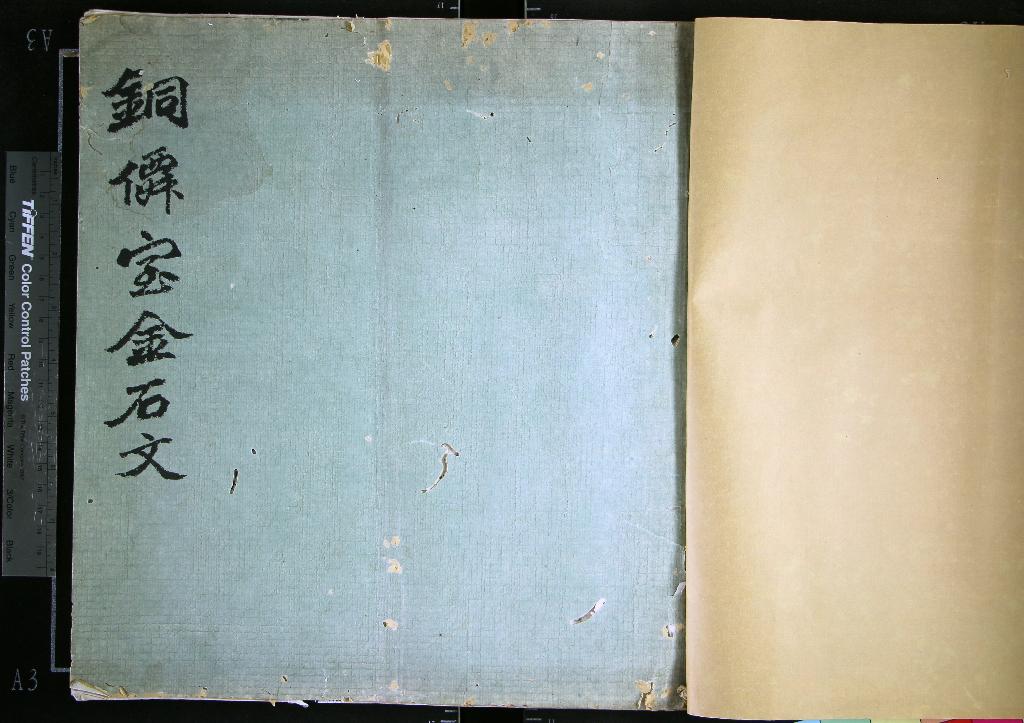 銅僊室金石文
A3
A3
TIFFEN Color Control Patches
Blue Cyan Green Yellow Red Magenta White 3/Color Black